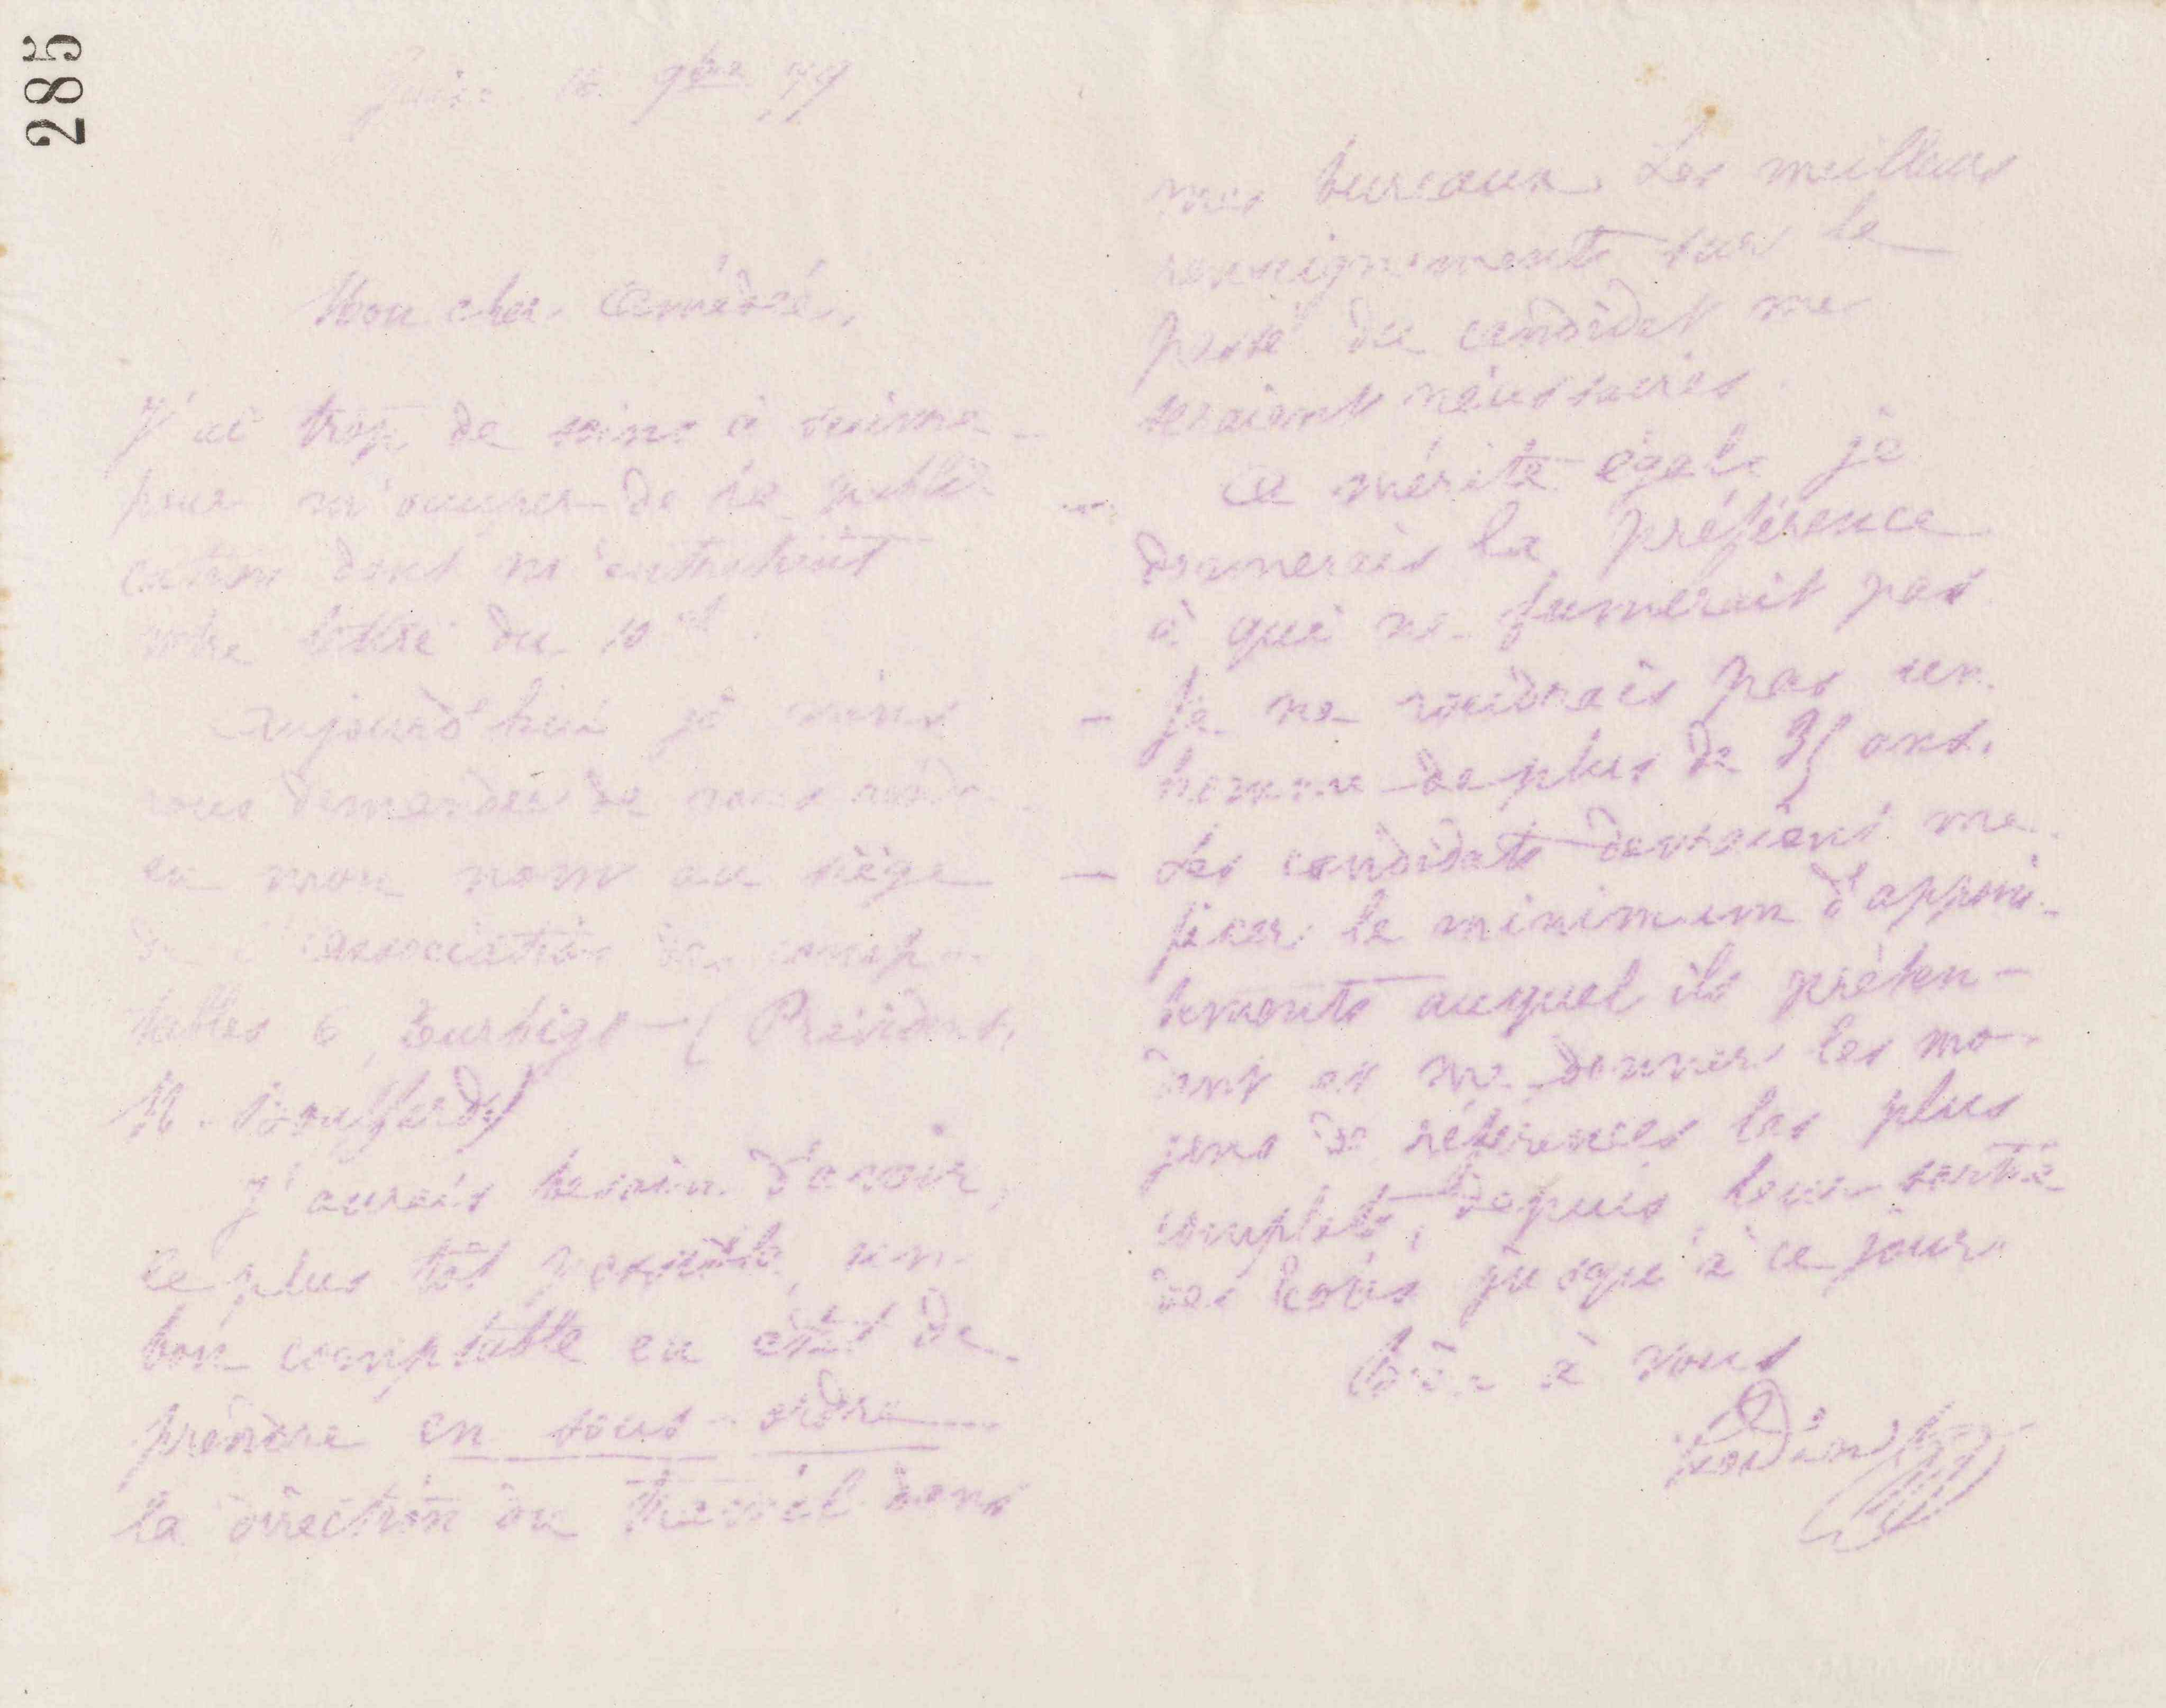 285
Guise 16 9bre 79
Mon cher Amédée,
J'ai trop de soins à suivre
pour m'occuper de la publi-
cation dont m'entretient
votre lettre du 10 ct.
Aujourd'hui je viens
vous demander de vous rendre
en mon nom au siège
de l'association des comp-
tables 6, Turbigo (Président,
M.
J'aurais besoin d'avoir,
le plus tôt possible, un
bon comptable en état de
prendre en sous-ordre
la direction du travail dans
mes bureaux. Les meilleurs
renseignements sur le
passé du candidat me
seraient nécessaires.
- A mérite égal je
donnerais la préférence
à qui ne fumerait pas
- Je ne voudrais pas un
homme de plus de 35 ans.
- Les candidats devraient me
fixer le minimum d'appoin-
tements auquel ils préten-
dent et me donner les mo-
yens de références les plus
complets, depuis leur sortie
des écoles jusqu'à ce jour.
Bien à vous
Godin